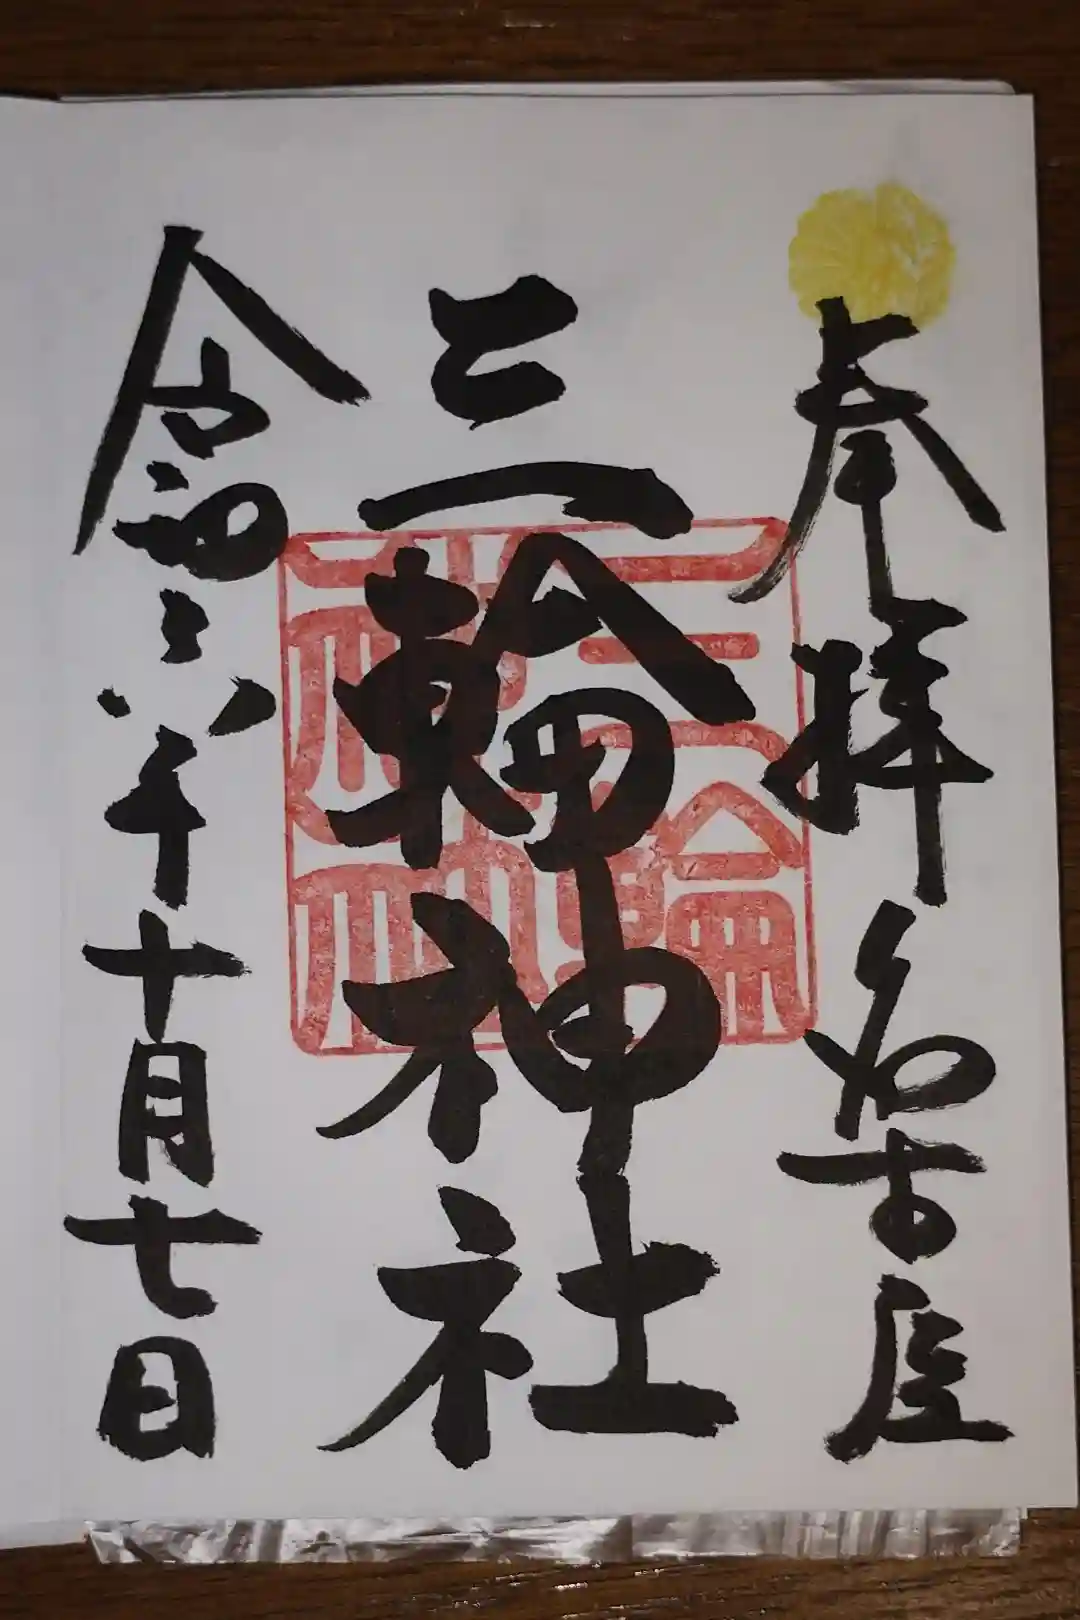 奉拝 名古屋
三輪神社
令和六年十月七日
三輪神社